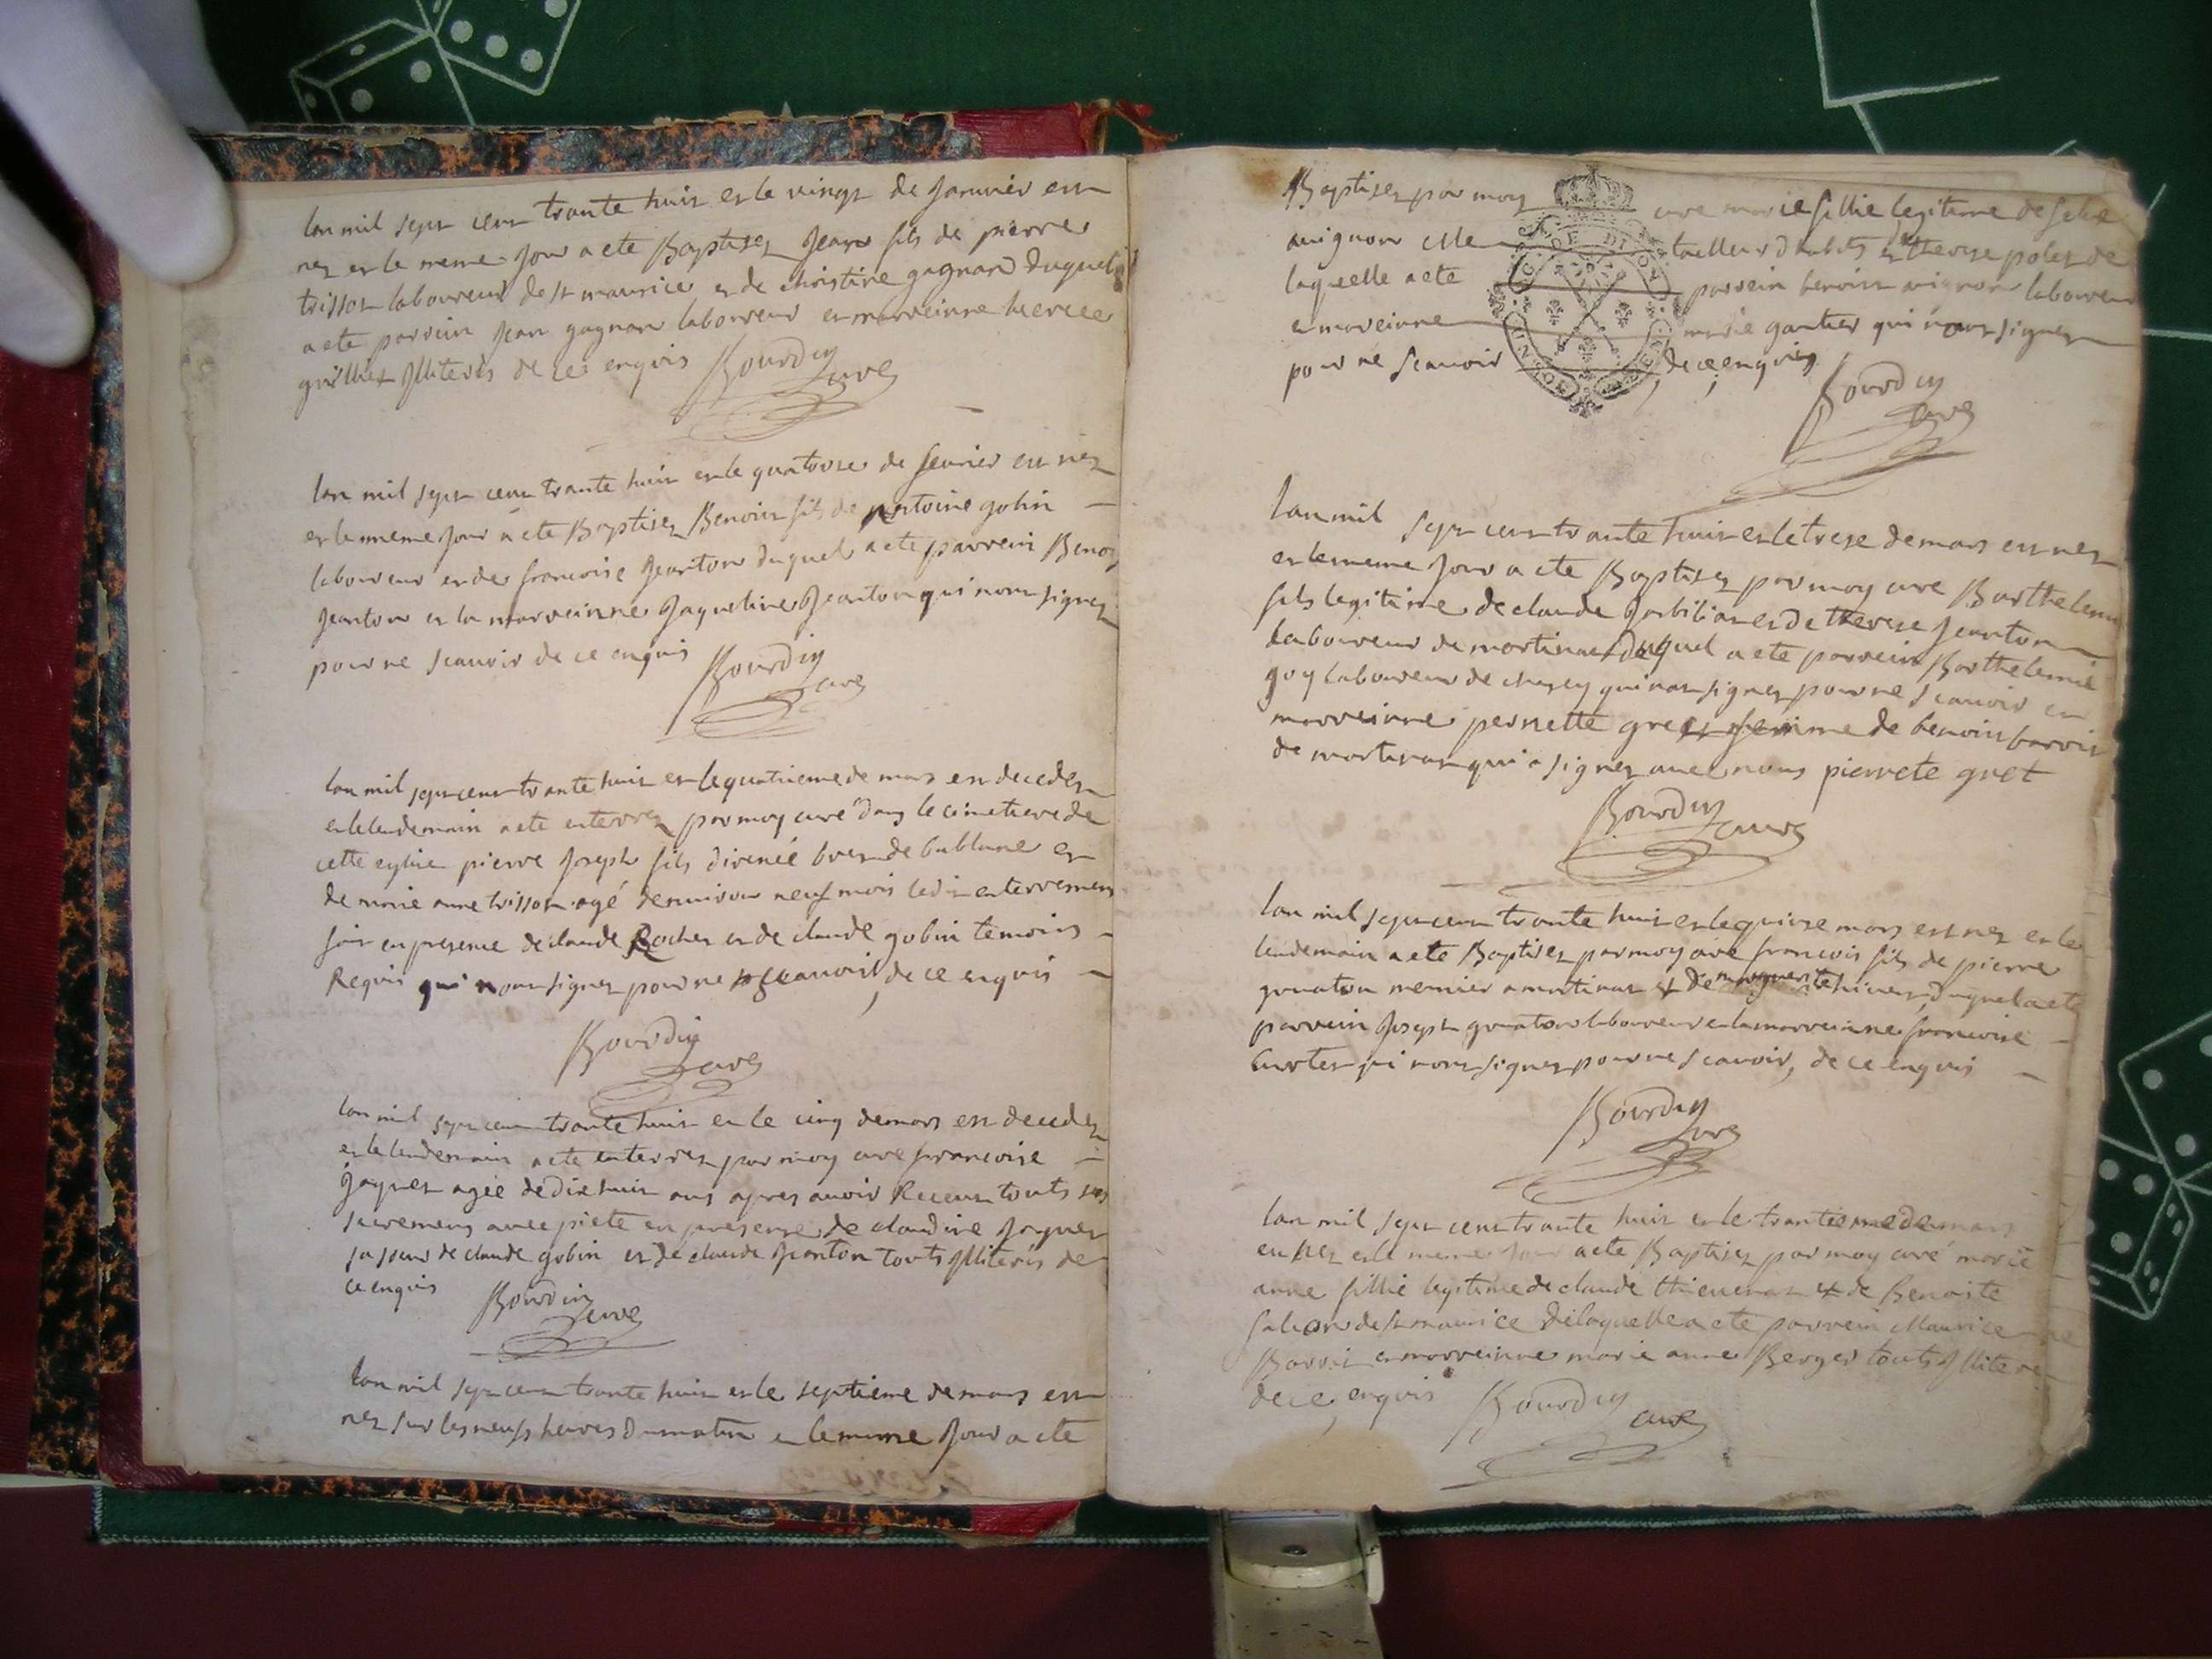 lan mil sept cent trante huit et le vingt de Janvier est
nez et le meme Jour a ete Baptisez Jean fils de pierre
trissot laboureur de st maurice et de christine gagnard duquel
a ete parrein Jean gagnard laboureur et marreinne
Illiterés de ce enquis Bourdin
curé
lan mil sept cent trante huit et le quatorse de fevrier est nez
et le meme Jour a ete Baptisez Benoist fils de Antoine gobin
laboureur et de francoise Jeanton duquel a ete parrein Benoi
Jeanton et la marreinne Jaqueline Jeanton qui nont signez
pour ne scavoir de ce enquis Bourdin
curé
lan mil sept cent trante huit et le quatrieme de mars est decedez
et le lendemain a ete enterrez par moy curé dans le cimetiere de
cette eglise pierre Joseph fils de
de marie anne trissot agé denviron neuf mois ledit enterrement
fait en presence de claude Rochet et de claude gobin temoins
Requis qui nont signez pour ne scavoir, de ce enquis
Bourdin
curé
lan mil sept cent trante huit et le cinq de mars est decedez
et le lendemain a ete enterrez par moy curé francoise
Jaques agée de dix huit ans apres avoir Receut touts ses
sacremens avec pieté en presence de claudine Jaques
sa soeur de claude gobin et de claude Jeanton touts Illiterés de
ce enquis Bourdin
curé
lan mil sept cent trante huit et le septieme de mars est
nez sur les neufs heures du matin et le meme Jour a ete
Baptisez par moy curé marie fillie legitime de
avignon tailleur dhabits et therese
laquelle a ete parrein benoist avignon laboureur
et marreinne marie gautier qui nont signez
pour ne scavoir de ce enquis
Bourdin
curé
lan mil sept cent trante huit et le trese de mars est nez
et le meme Jour a ete Baptisez par moy curé Barthelemi
fils legitime de claude et de therese Jeanton
laboureur de martinat duquel a ete parrein Barthelemie
goy laboureur de qui na signez pour ne scavoir et
marreinne pernette gret femme de benoist
de martinat qui a signez avec nous pierrete gret
Bourdin
curé
lan mil sept cent trante huit et le quinse mars est nez et le
lendemain a ete Baptisez par moy curé francois fils de pierre
meunier a martinat et de marguerite duquel a ete
parrein Joseph laboureur et la marreinne francoise
qui nont signez pour ne scavoir, de ce enquis
Bourdin
curé
lan mil sept cent trante huit et le trantieme de mars
est nez et le meme Jour a ete Baptisez par moy curé marie
anne fillie legitime de claude et de Benoite
de st maurice de laquelle a ete parrein Maurice
et marreinne marie anne Berger touts Illiteré
de ce enquis Bourdin
curé